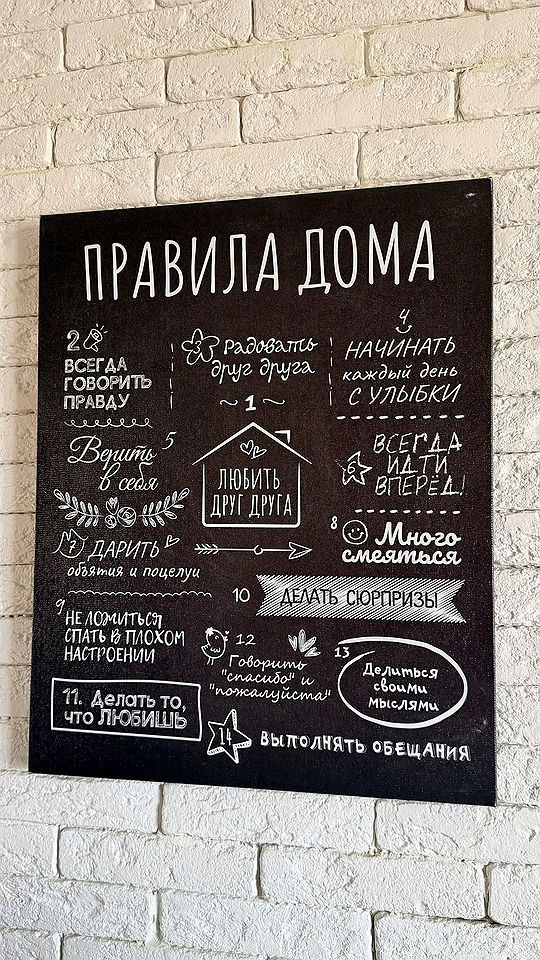 ПРАВИЛА ДОМА
2
ВСЕГДА
ГОВОРИТЬ
ПРАВДУ
3 Радовать
друг друга
4
НАЧИНАТЬ
каждый день
С УЛЫБКИ
~ 1 ~
ЛЮБИТЬ
ДРУГ ДРУГА
Верить 5
в себя
6 ВСЕГДА
ИДТИ
ВПЕРЁД!
7 ДАРИТЬ
объятия и поцелуи
8 Много
смеяться
9 НЕ ЛОЖИТЬСЯ
СПАТЬ В ПЛОХОМ
НАСТРОЕНИИ
10 ДЕЛАТЬ СЮРПРИЗЫ
11. Делать то,
что ЛЮБИШЬ
12
Говорить
"спасибо" и
"пожалуйста"
13
Делиться
своими
мыслями
14 ВЫПОЛНЯТЬ ОБЕЩАНИЯ